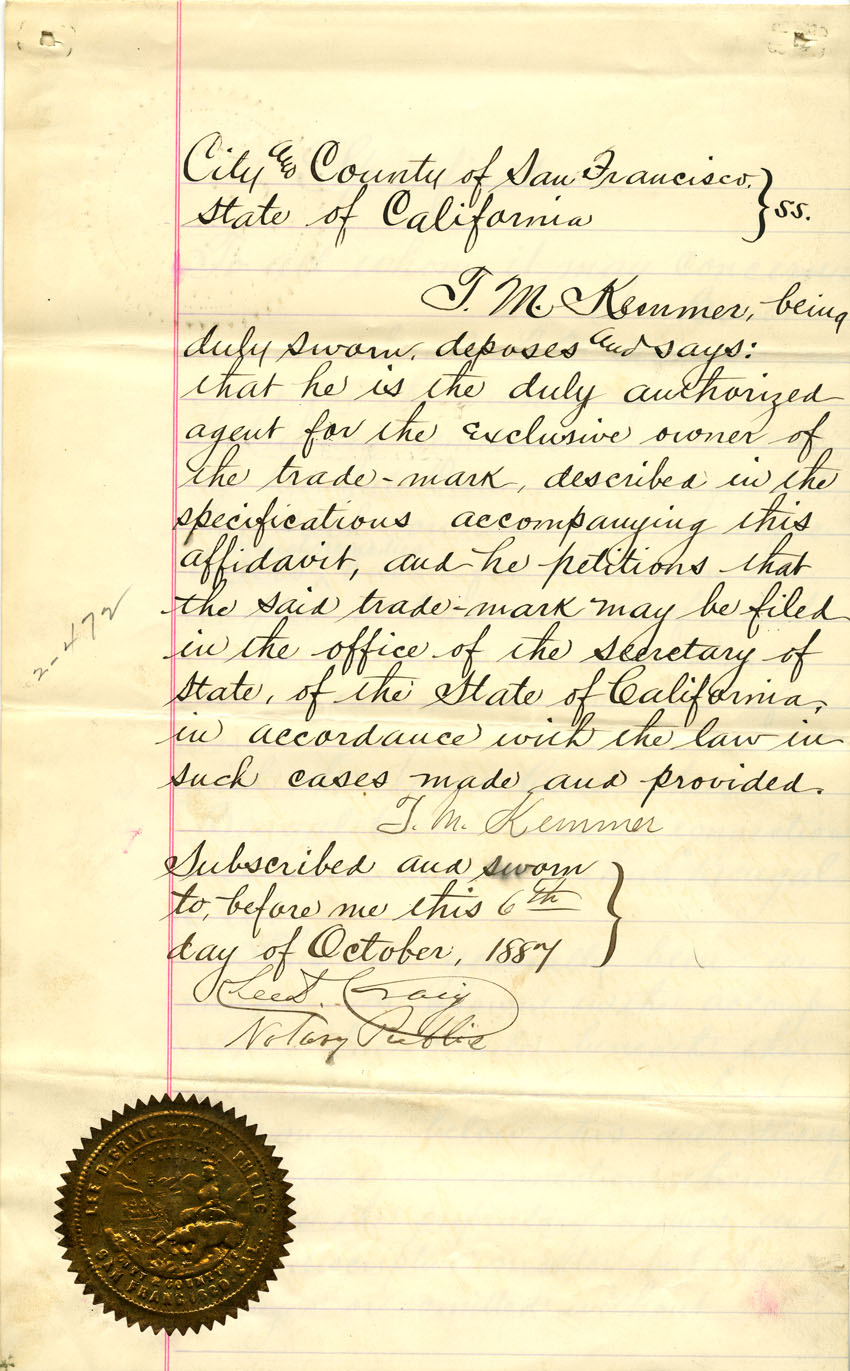 City and County of San Francisco.
State of California } ss.
T. M. Kemmer, being
duly sworn, deposes and says:
that he is the duly authorized
agent for the exclusive owner of
the trade-mark, described in the
specifications accompanying this
affidavit, and he petitions that
the said trade-mark may be filed
in the office of the Secretary of
State, of the State of California,
in accordance with the law in
such cases made and provided.
T. M. Kemmer
Subscribed and sworn
to, before me this 6th
day of October, 1887
Lee D. Craig
Notary Public
2-472
LEE D. CRAIG NOTARY PUBLIC
CITY & COUNTY OF
SAN FRANCISCO, CAL.